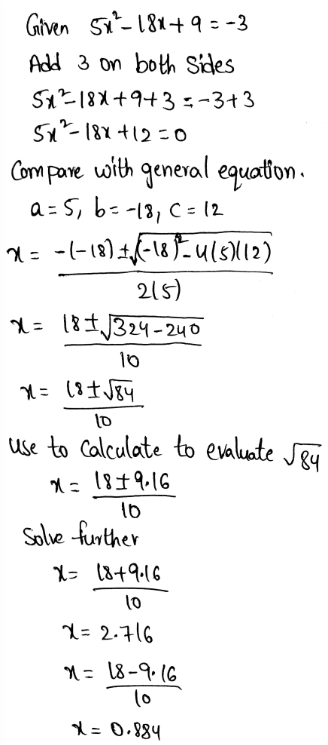 Given 5x²-18x+9=-3
Add 3 on both Sides
5x²-18x+9+3=-3+3
5x²-18x+12=0
Compare with general equation.
a=5, b=-18, C=12
x = -(-18)±√(-18)²-4(5)(12)
2(5)
x = 18±√324-240
10
x = 18±√84
10
Use to Calculate to evaluate √84
x = 18±9.16
10
Solve further
x = 18+9.16
10
x = 2.716
x = 18-9.16
10
x = 0.884